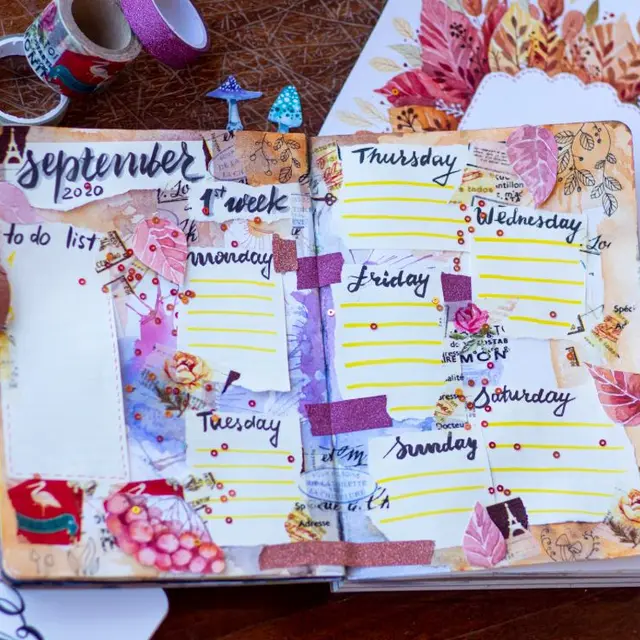 september
2020
1st week
to do list
Monday
Tuesday
Thursday
Wednesday
Friday
Saturday
Sunday
MON
Docteu
Spéci
Adresse